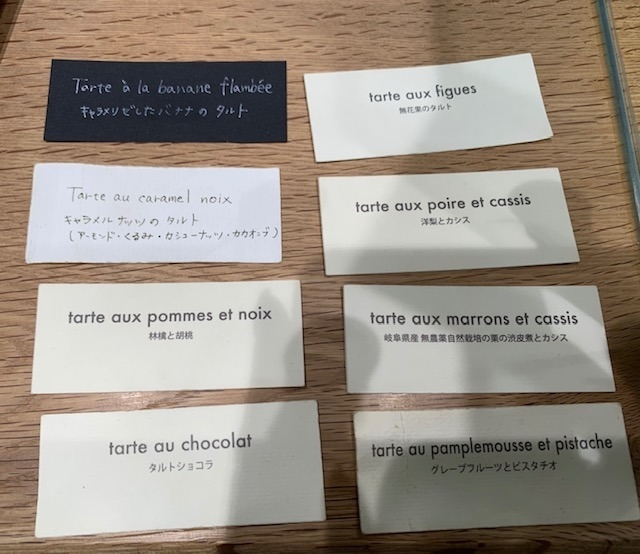 Tarte à la banane flambée
キャラメリゼしたバナナの タルト
tarte aux figues
無花果のタルト
Tarte au caramel noix
キャラメルナッツの タルト
(アーモンド・くるみ・カシューナッツ・カカオニブ)
tarte aux poire et cassis
洋梨とカシス
tarte aux pommes et noix
林檎と胡桃
tarte aux marrons et cassis
岐阜県産 無農薬自然栽培の栗の渋皮煮とカシス
tarte au chocolat
タルトショコラ
tarte au pamplemousse et pistache
グレープフルーツとピスタチオ